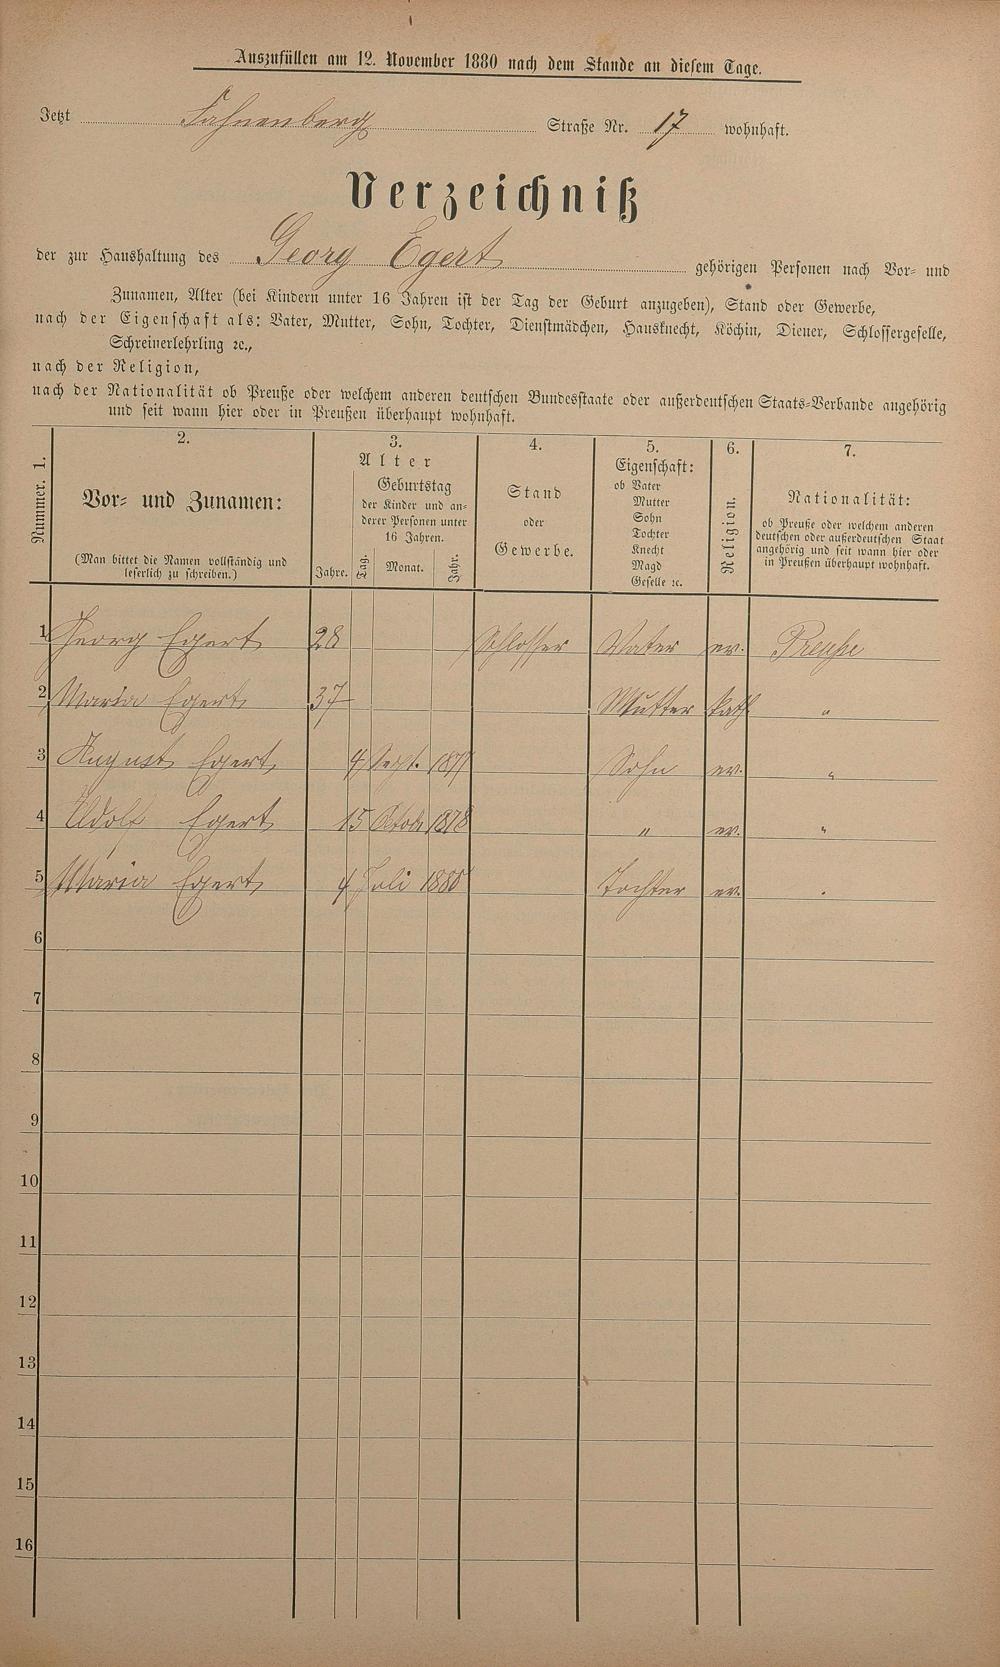 Auszufüllen am 12. November 1880 nach dem Stande an diesem Tage.
Jetzt Fahnenberg Straße Nr. 17 wohnhaft.
Verzeichniß
der zur Haushaltung des Georg Egert gehörigen Personen nach Vor- und
Zunamen, Alter (bei Kindern unter 16 Jahren ist der Tag der Geburt anzugeben), Stand oder Gewerbe,
nach der Eigenschaft als: Vater, Mutter, Sohn, Tochter, Dienstmädchen, Hausknecht, Köchin, Diener, Schlossergeselle,
Schreinerlehrling ꝛc.,
nach der Religion,
nach der Nationalität ob Preuße oder welchem anderen deutschen Bundesstaate oder außerdeutschen Staats-Verbande angehörig
und seit wann hier oder in Preußen überhaupt wohnhaft.
Nummer. 1.
2.
Vor- und Zunamen:
(Man bittet die Namen vollständig und
leserlich zu schreiben.)
3.
Alter
Jahre.
Geburtstag
der Kinder und an-
derer Personen unter
16 Jahren.
Tag. Monat. Jahr.
4.
Stand
oder
Gewerbe.
5.
Eigenschaft:
ob Vater
Mutter
Sohn
Tochter
Knecht
Magd
Geselle ꝛc.
6.
Religion.
7.
Nationalität:
ob Preuße oder welchem anderen
deutschen oder außerdeutschen Staat
angehörig und seit wann hier oder
in Preußen überhaupt wohnhaft.
1 Georg Egert 28 Schlosser Vater ev. Preuße
2 Maria Egert 37 Mutter kath. "
3 August Egert 4 Sept. 1877 Sohn ev. "
4 Adolf Egert 15 Octob. 1878 " ev. "
5 Maria Egert 4 Juli 1880 Tochter ev. "
6
7
8
9
10
11
12
13
14
15
16